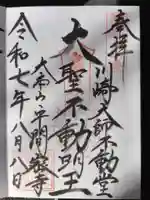 奉拝
川崎大師不動堂
大聖不動明王
大本山平間密寺
令和七年八月八日